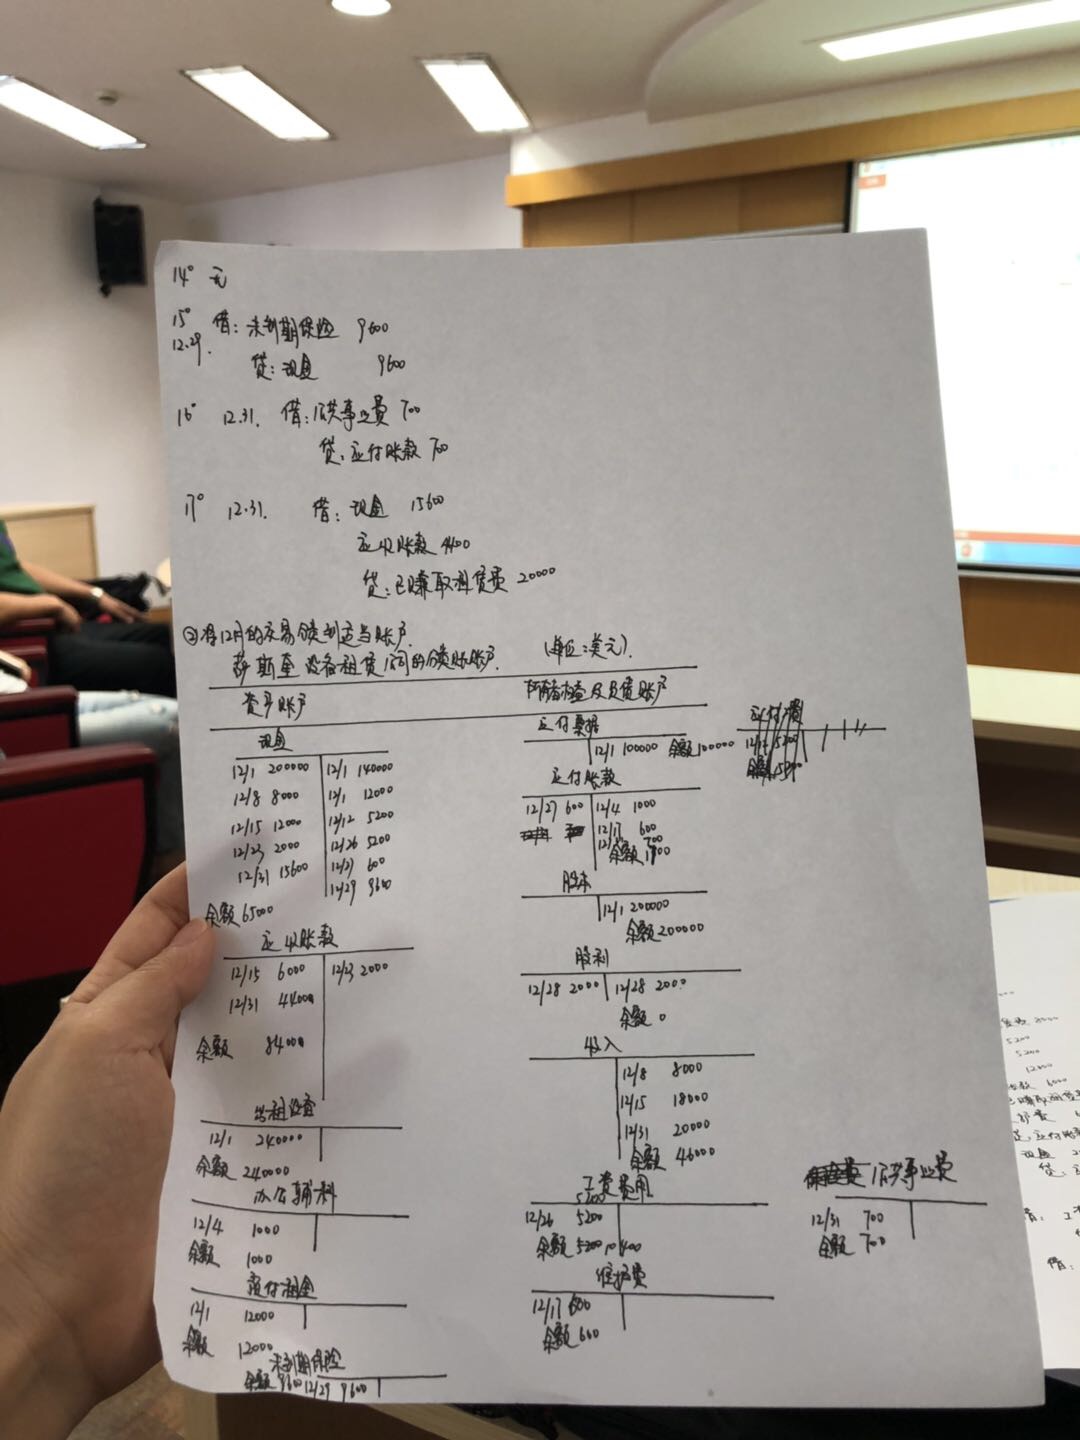 14° 无
15° 借：未到期保险 9600
12.29.
贷：现金 9600
16° 12.31. 借：公共事业费 700
贷：应付账款 700
17° 12.31. 借：现金 15600
应收账款 4400
贷：已赚取租赁费 20000
②将12月的交易分类到适当账户.
萨斯奎 设备租赁公司的分类账账户. (单位：美元).
资产账户 所有者权益及负债账户
现金
12/1 200000 12/1 140000
12/8 8000 12/1 12000
12/15 12000 12/12 5200
12/23 2000 12/26 5200
12/31 15600 12/27 600
12/29 9600
余额 65000
应收账款
12/15 6000 12/23 2000
12/31 4400
余额 8400
出租设备
12/1 240000
余额 240000
办公辅料
12/4 1000
余额 1000
预付租金
12/1 12000
余额 12000
未到期保险
余额 9600 12/29 9600
应付票据
12/1 100000 余额 100000
应付账款
12/27 600 12/4 1000
12/17 600
700
余额
股本
12/1 200000
余额 200000
股利
12/28 2000 12/28 2000
余额 0
收入
12/8 8000
12/15 18000
12/31 20000
余额 46000
工资费用
5200
12/26 5200
余额 5200 10400
维护费
12/17 600
余额 600
公共事业费
12/31 700
余额 700
5200
5200
现金